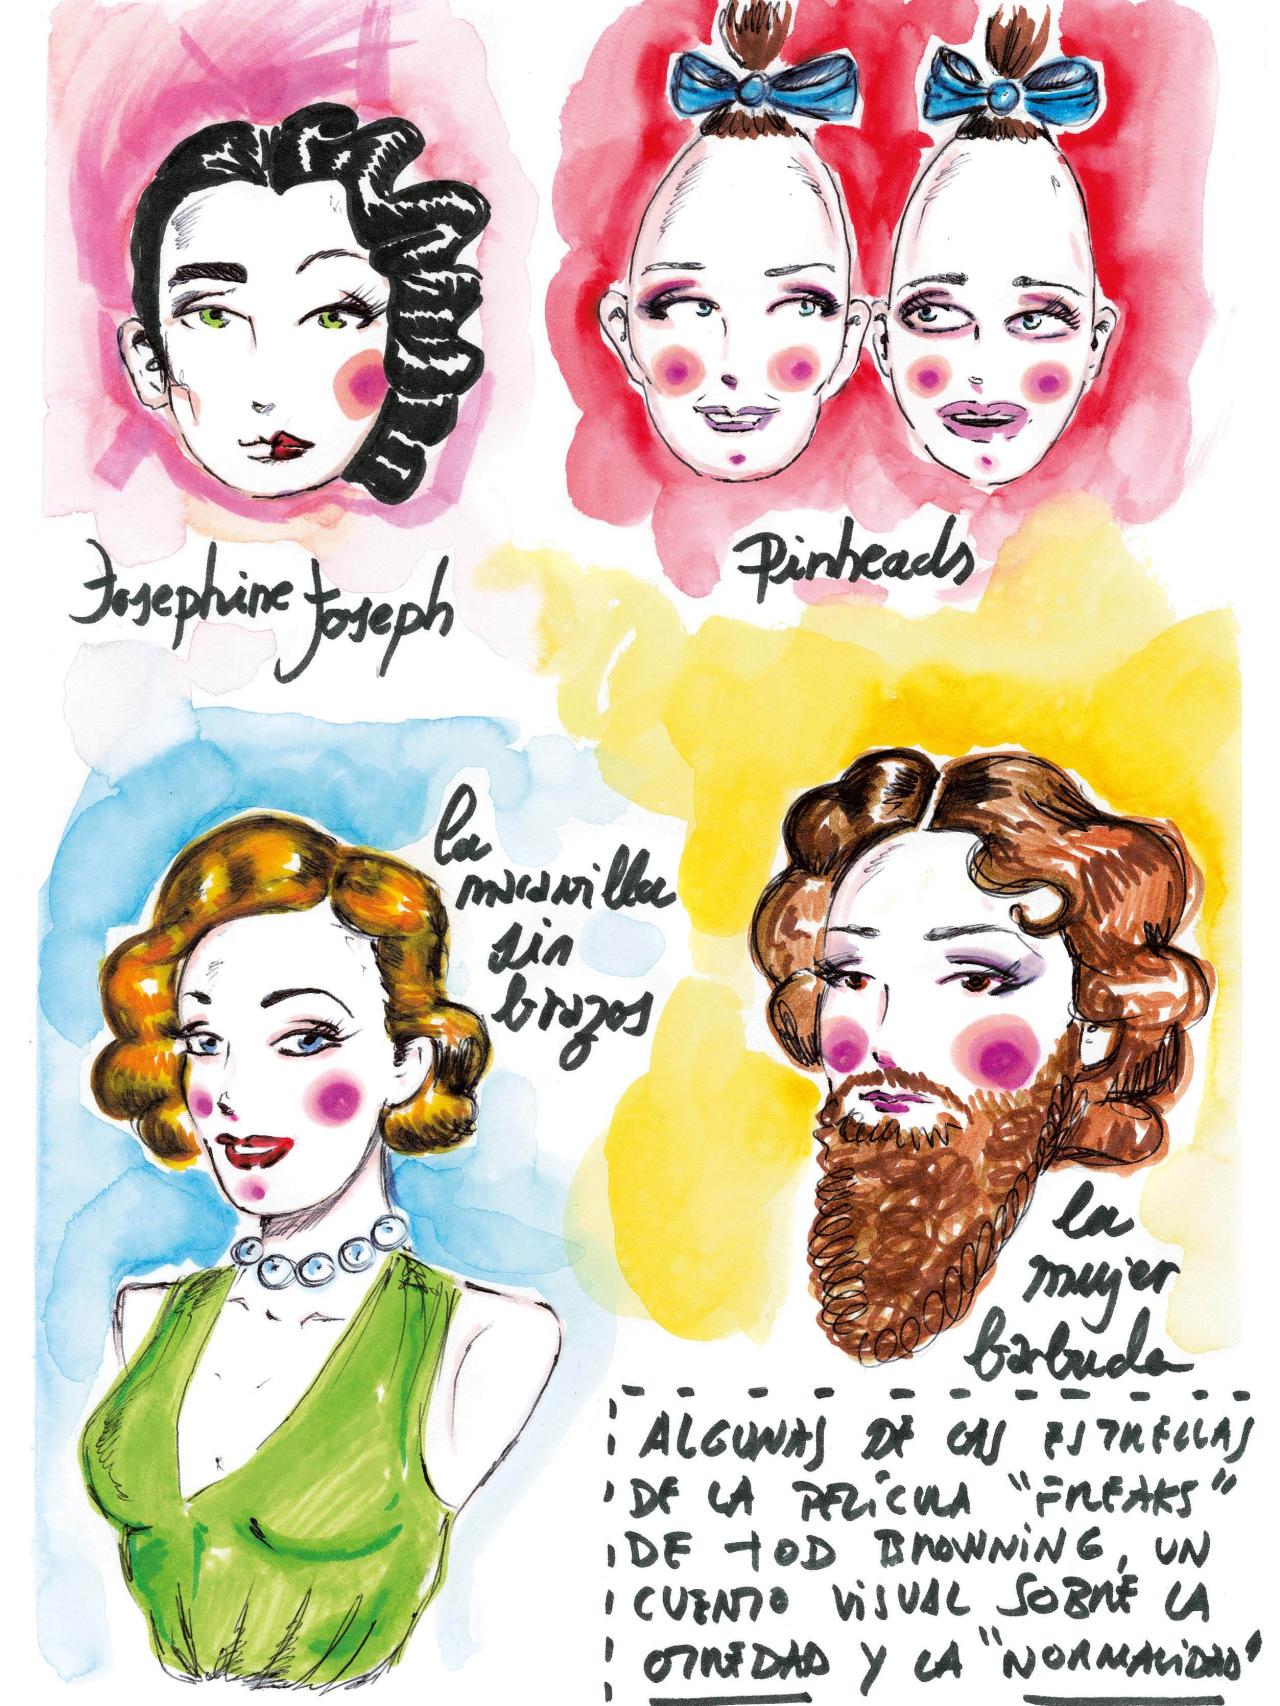 Josephine Joseph
Pinheads
la
maravilla
sin
brazos
la
mujer
barbuda
ALGUNAS DE LAS ESTRELLAS
DE LA PELÍCULA "FREAKS"
DE TOD BROWNING, UN
CUENTO VISUAL SOBRE LA
OTREDAD Y LA "NORMALIDAD"